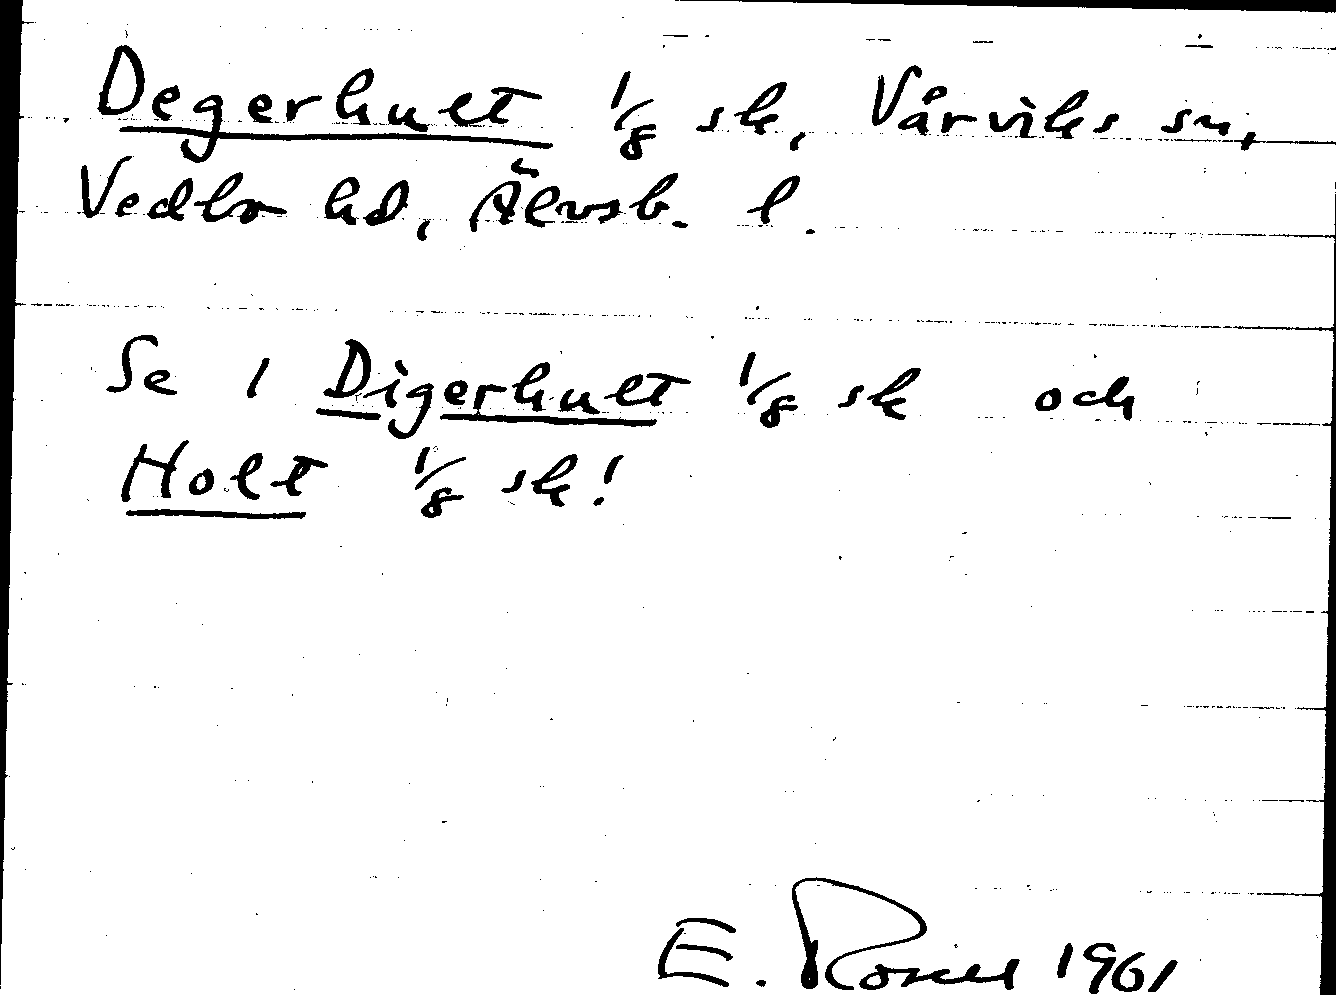 Degerhult 1/8 sk, Vårviks sn,
Vedbo hd, Älvsb. l.
Se 1 Digerhult 1/8 sk och
Holt 1/8 sk!
E. Rosell 1961